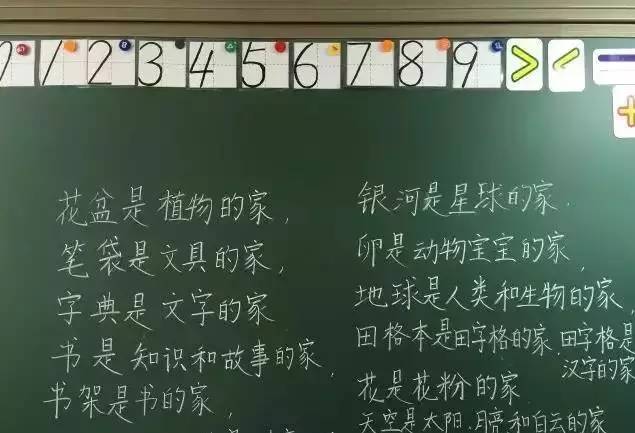 0 1 2 3 4 5 6 7 8 9 > <
花盆是植物的家,
笔袋是文具的家,
字典是文字的家
书是知识和故事的家,
书架是书的家,
银河是星球的家.
卵是动物宝宝的家,
地球是人类和生物的家,
田格本是田字格的家.田字格是
汉字的家
花是花粉的家
天空是太阳.月亮和白云的家